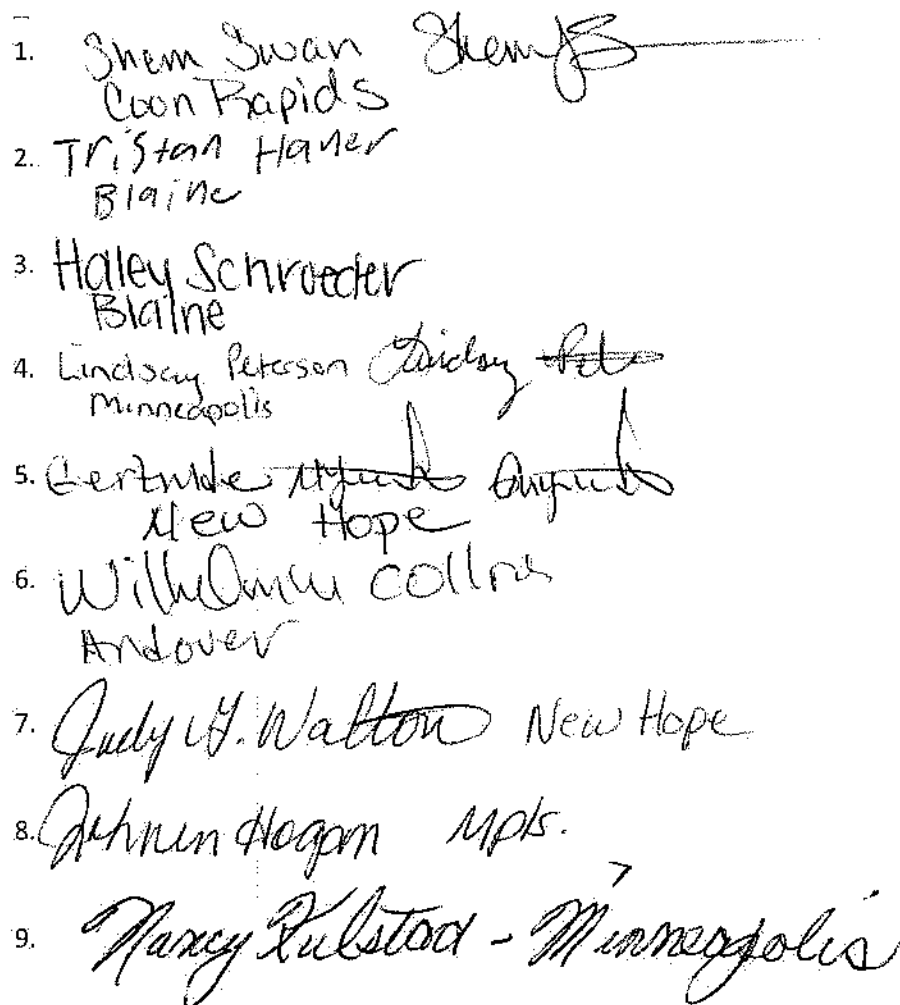 1. Sherri Swan
Coon Rapids
2. Tristan Haner
Blaine
3. Haley Schroeder
Blaine
4. Lindsay Peterson Lindsay
Minneapolis
5. Gertrude
New Hope
6. Collins
Andover
7. Judy G. Walton New Hope
8. Hogan Mpls.
9. Nancy Kulstad - Minneapolis